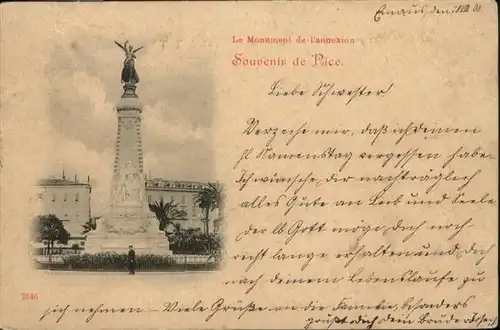 Emaus, den
Le Monument de l'annexion
Souvenir de Nice.
Liebe Schwester!
Verzeihe mir, daß ich deinen
hl Namenstag vergessen habe
Ich wünsche dir nachträglich
alles Gute an Leib und Seele
der lb Gott möge dich noch
recht lange erhalten und dich
nach deinem Lebenslaufe zu
2546
sich nehmen – Viele Grüße an die Familie, besonders
grüßt dich dein Bruder